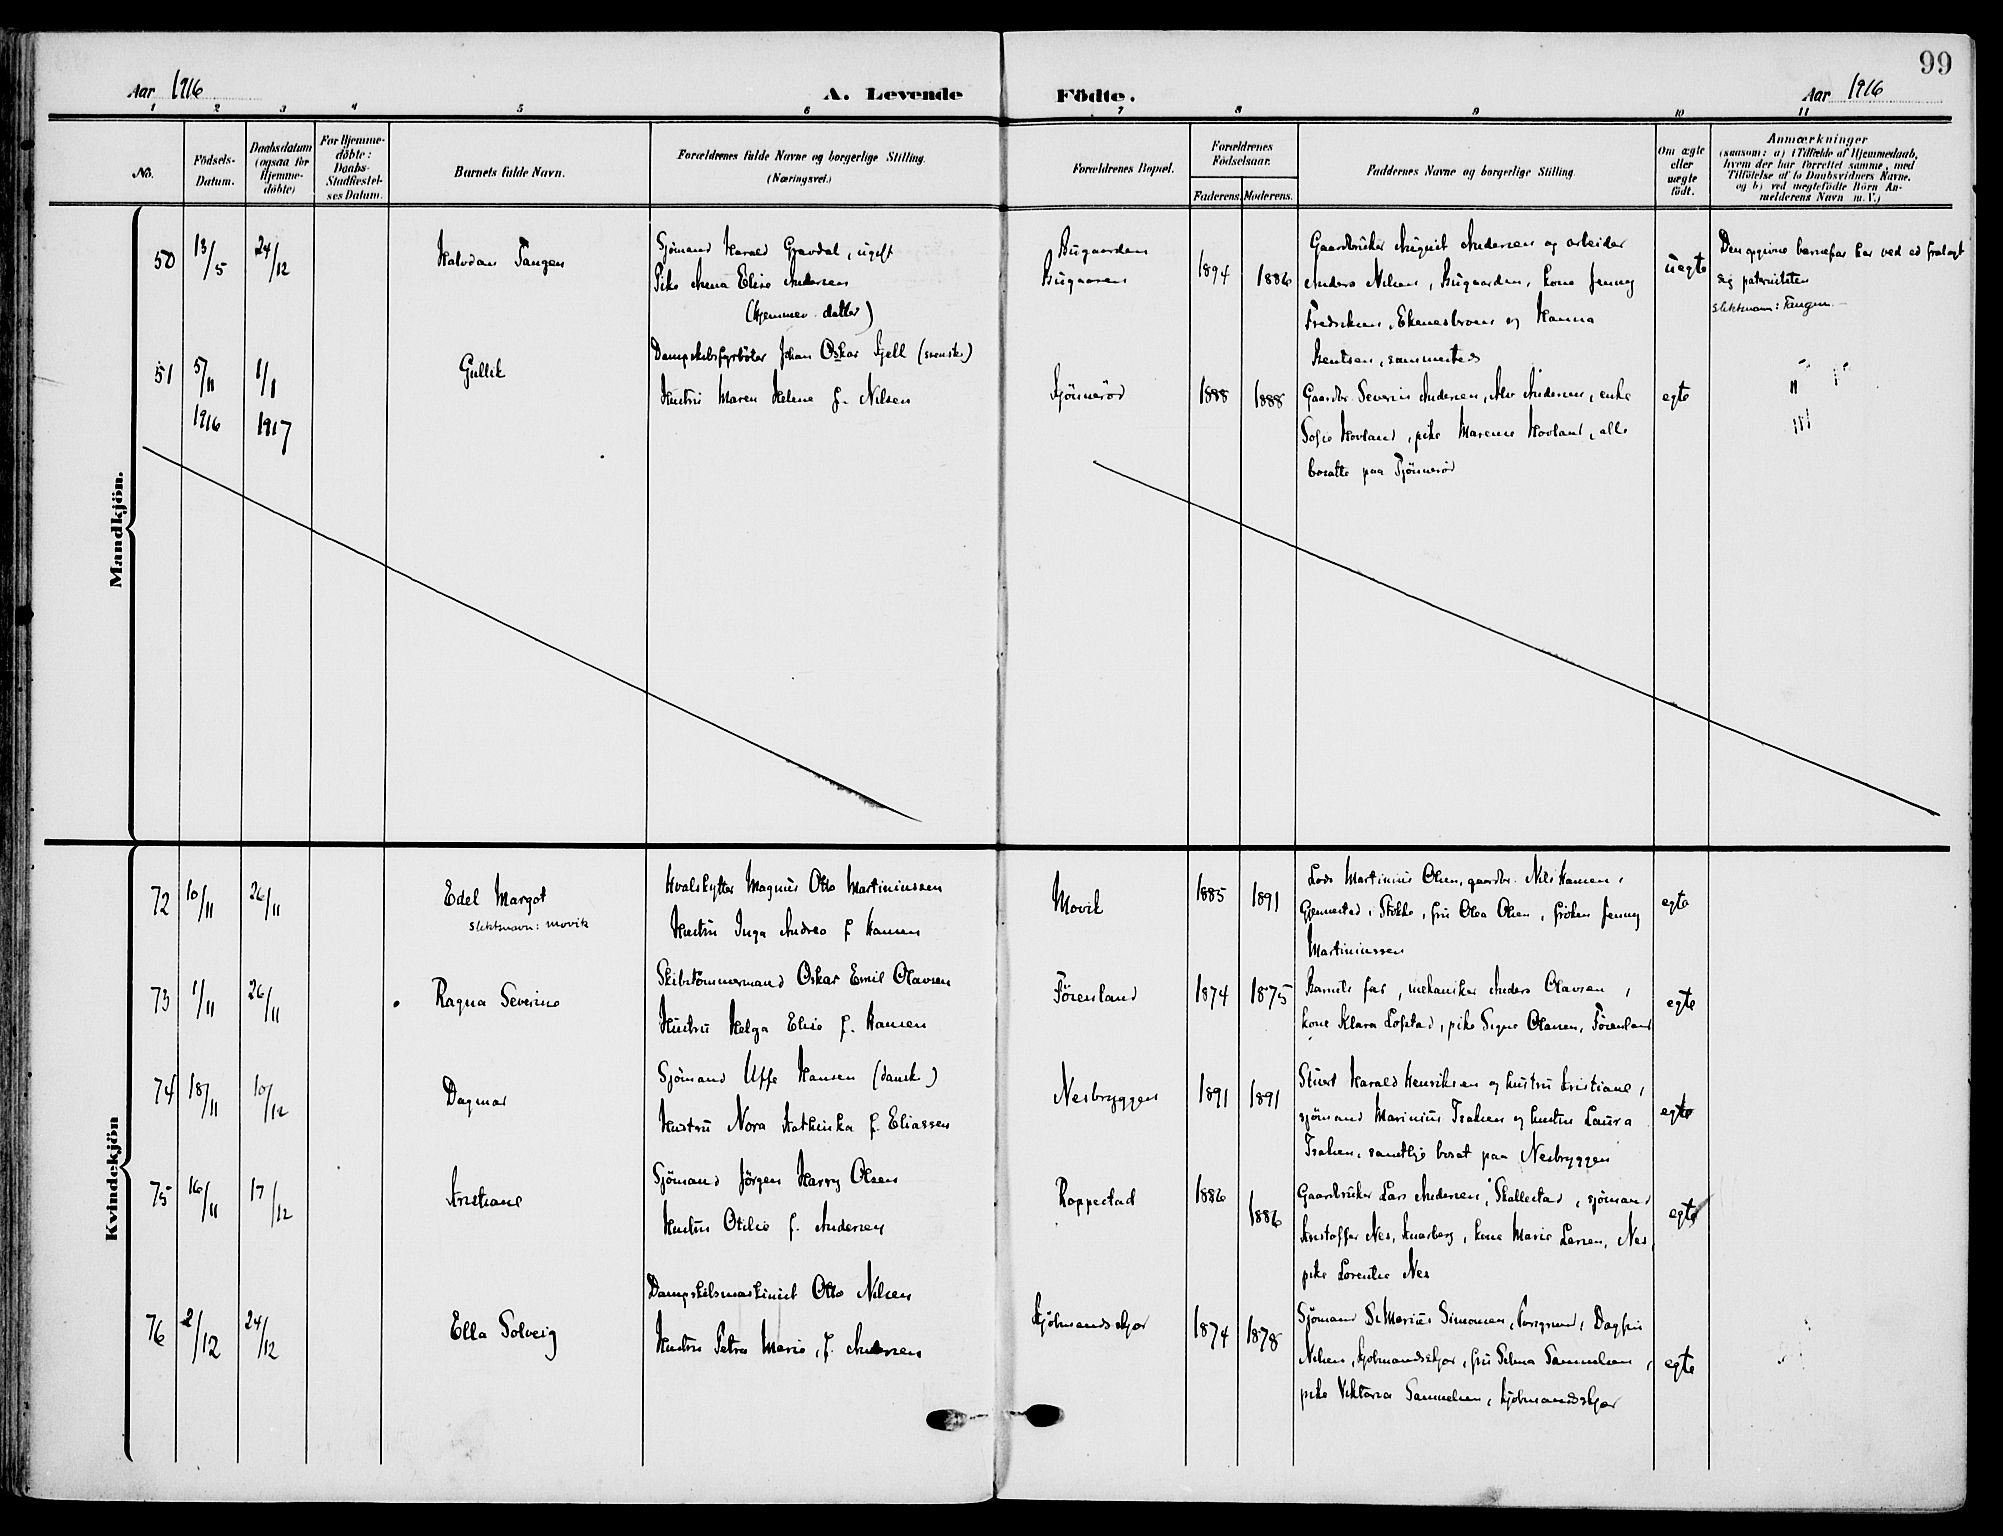 99
Aar 1916
A. Levende Födte.
Aar 1916
1 2 3 4 5 6 7 8 9 10 11
No.
Födsels-
Datum.
Daabsdatum
(ogsaa for
Hjemme-
döbte)
For Hjemme-
döbte:
Daabs-
Stadfæstel-
ses Datum.
Barnets fulde Navn.
Forældrenes fulde Navne og borgerlige Stilling.
(Næringsvei.)
Forældrenes Bopæl.
Forældrenes
Födselsaar.
Faderens. Moderens.
Faddernes Navne og borgerlige Stilling
Om ægte
eller
uægte
födt.
Anmærkninger
(saasom: a) i Tilfælde af Hjemmedaab,
hvem der har forrettet samme, med
Tilföielse af to Daabsvidners Navne,
og b) ved uægtefödte Börn An-
melderens Navn m.V.)
Mandkjön.
50 13/5 24/12 Halvdan Tangen
Sjömand Harald Gravdal, ugift
Pike Anna Elise Andersen
(hjemmev. datter)
Bugaarden
Bugaarden
1894 1886
Gaardbruker August Andersen og arbeider
Anders Nilsen, Bugaarden, kone Jenny
Fredriksen, Ekenesbroen og Hanna
Bentsen, sammesteds
uegte
Den opgivne barnefar har ved ed fralagt
sig paterniteten
slektsnavn: Tangen
51 5/11 1916 1/1 1917 Gullik
Dampskibsfyrböter Johan Oskar Kjell (svenske)
Hustru Maren Helene f. Nilsen
Tjönneröd
1888 1888
Gaardbr. Severin Andersen, Alv Andersen, enke
Sofie Hovland, pike Marenne Hovland, alle
bosatte paa Tjönneröd
egte
"
Kvindekjön
72 10/11 26/11 Edel Margot
slektsnavn: Movik
Hvalskytter Magnus Otto Martiniussen
Hustru Inga Andrea f. Hansen
Movik
1885 1891
Lods Martinius Olsen, gaardbr. Nils Hansen,
Gjennestad i Stokke, fru Olea Olsen, fröken Jenny
Martiniussen
egte
73 1/11 26/11 Ragna Severine
Skibstömmermand Oskar Emil Olavsen
Hustru Helga Elise f. Hansen
Förenland
1874 1875
Barnets far, mekaniker Anders Olavsen,
kone Klara Lofstad, pike Signe Olausen, Förenland
egte
74 18/11 10/12 Dagmar
Sjömand Uffe Hansen (danske)
Hustru Nora Kathinka f. Eliassen
Nesbryggen
1891 1891
Stuert Harald Henriksen og hustru Kristiane,
sjömand Marinius Isaksen og hustru Laura
Isaksen, samtlige bosat paa Nesbryggen
egte
75 16/11 17/12 Kristiane
Sjömand Jörgen Harry Olsen
Hustru Otilie f. Andersen
Roppestad
1886 1886
Gaardbruker Lars Andersen, Skallestad, sjömand
Kristoffer Nes, Knarberg, kone Marie Larsen, Nes,
pike Lorentse Nes
egte
76 2/12 24/12 Ella Solveig
Dampskibsmaskinist Otto Nilsen
Hustru Petra Marie, f. Andersen
Kjöbmandskjær
1874 1878
Sjömand S. Marius Simonsen, Dagfin
Nilsen, Kjöbmandskjær, fru Selma Samuelsen,
pike Viktoria Samuelsen, Kjöbmandskjær
egte